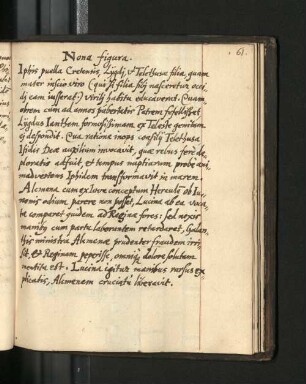 61.
Nona figura.
Iphis puella Cretensis, Lygdi, et Telethusæ filia, quam
mater inscio viro (qui si filia sibi nasceretur occi,,
di eam iusserat) virili habitu educaverat. Quam
cum ad annos pubertatis Patrem
Lygdus Ianthem formosissimam ex Teleste genitam
ei despondit. Qua ratione inops consilij Telethusa
Isidis Deæ auxilium invocavit, quæ rebus fere de,,
ploratis adfuit, et tempus nuptiarum probe ani,,
madvertens Iphidem transformavit in marem.
Alcmena cum ex Iove conceptum Herculem ob Iu,,
nonis odium parere non posset, Lucina ab ea voca,,
ta comparet quidem ad Regina fores: sed nexis
manibus cum partu laborantem retardaret, Galan,,
this ministra Alcmenæ prudenter fraudem irri,,
sit, et Reginam peperisse, omniq dolore solutam
mentita est. Lucina igitur manibus rursus ex,,
plicatis, Alcmenam cruciatu liberavit.